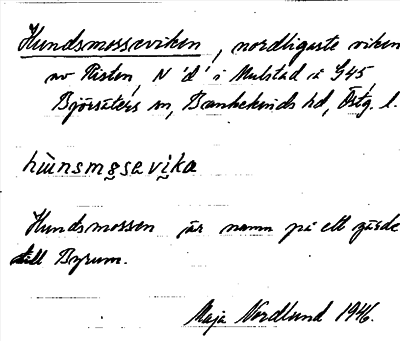 Hundsmosseviken, nordligaste viken
av Risten N 'd' i Mulstad å G45
Björsäters sn, Bankekinds hd, Östg. l.
hùnsmo̥se vi̥ka
Hundsmossen är namn på ett gärde
till Byrum.
Maja Nordlund 1946.